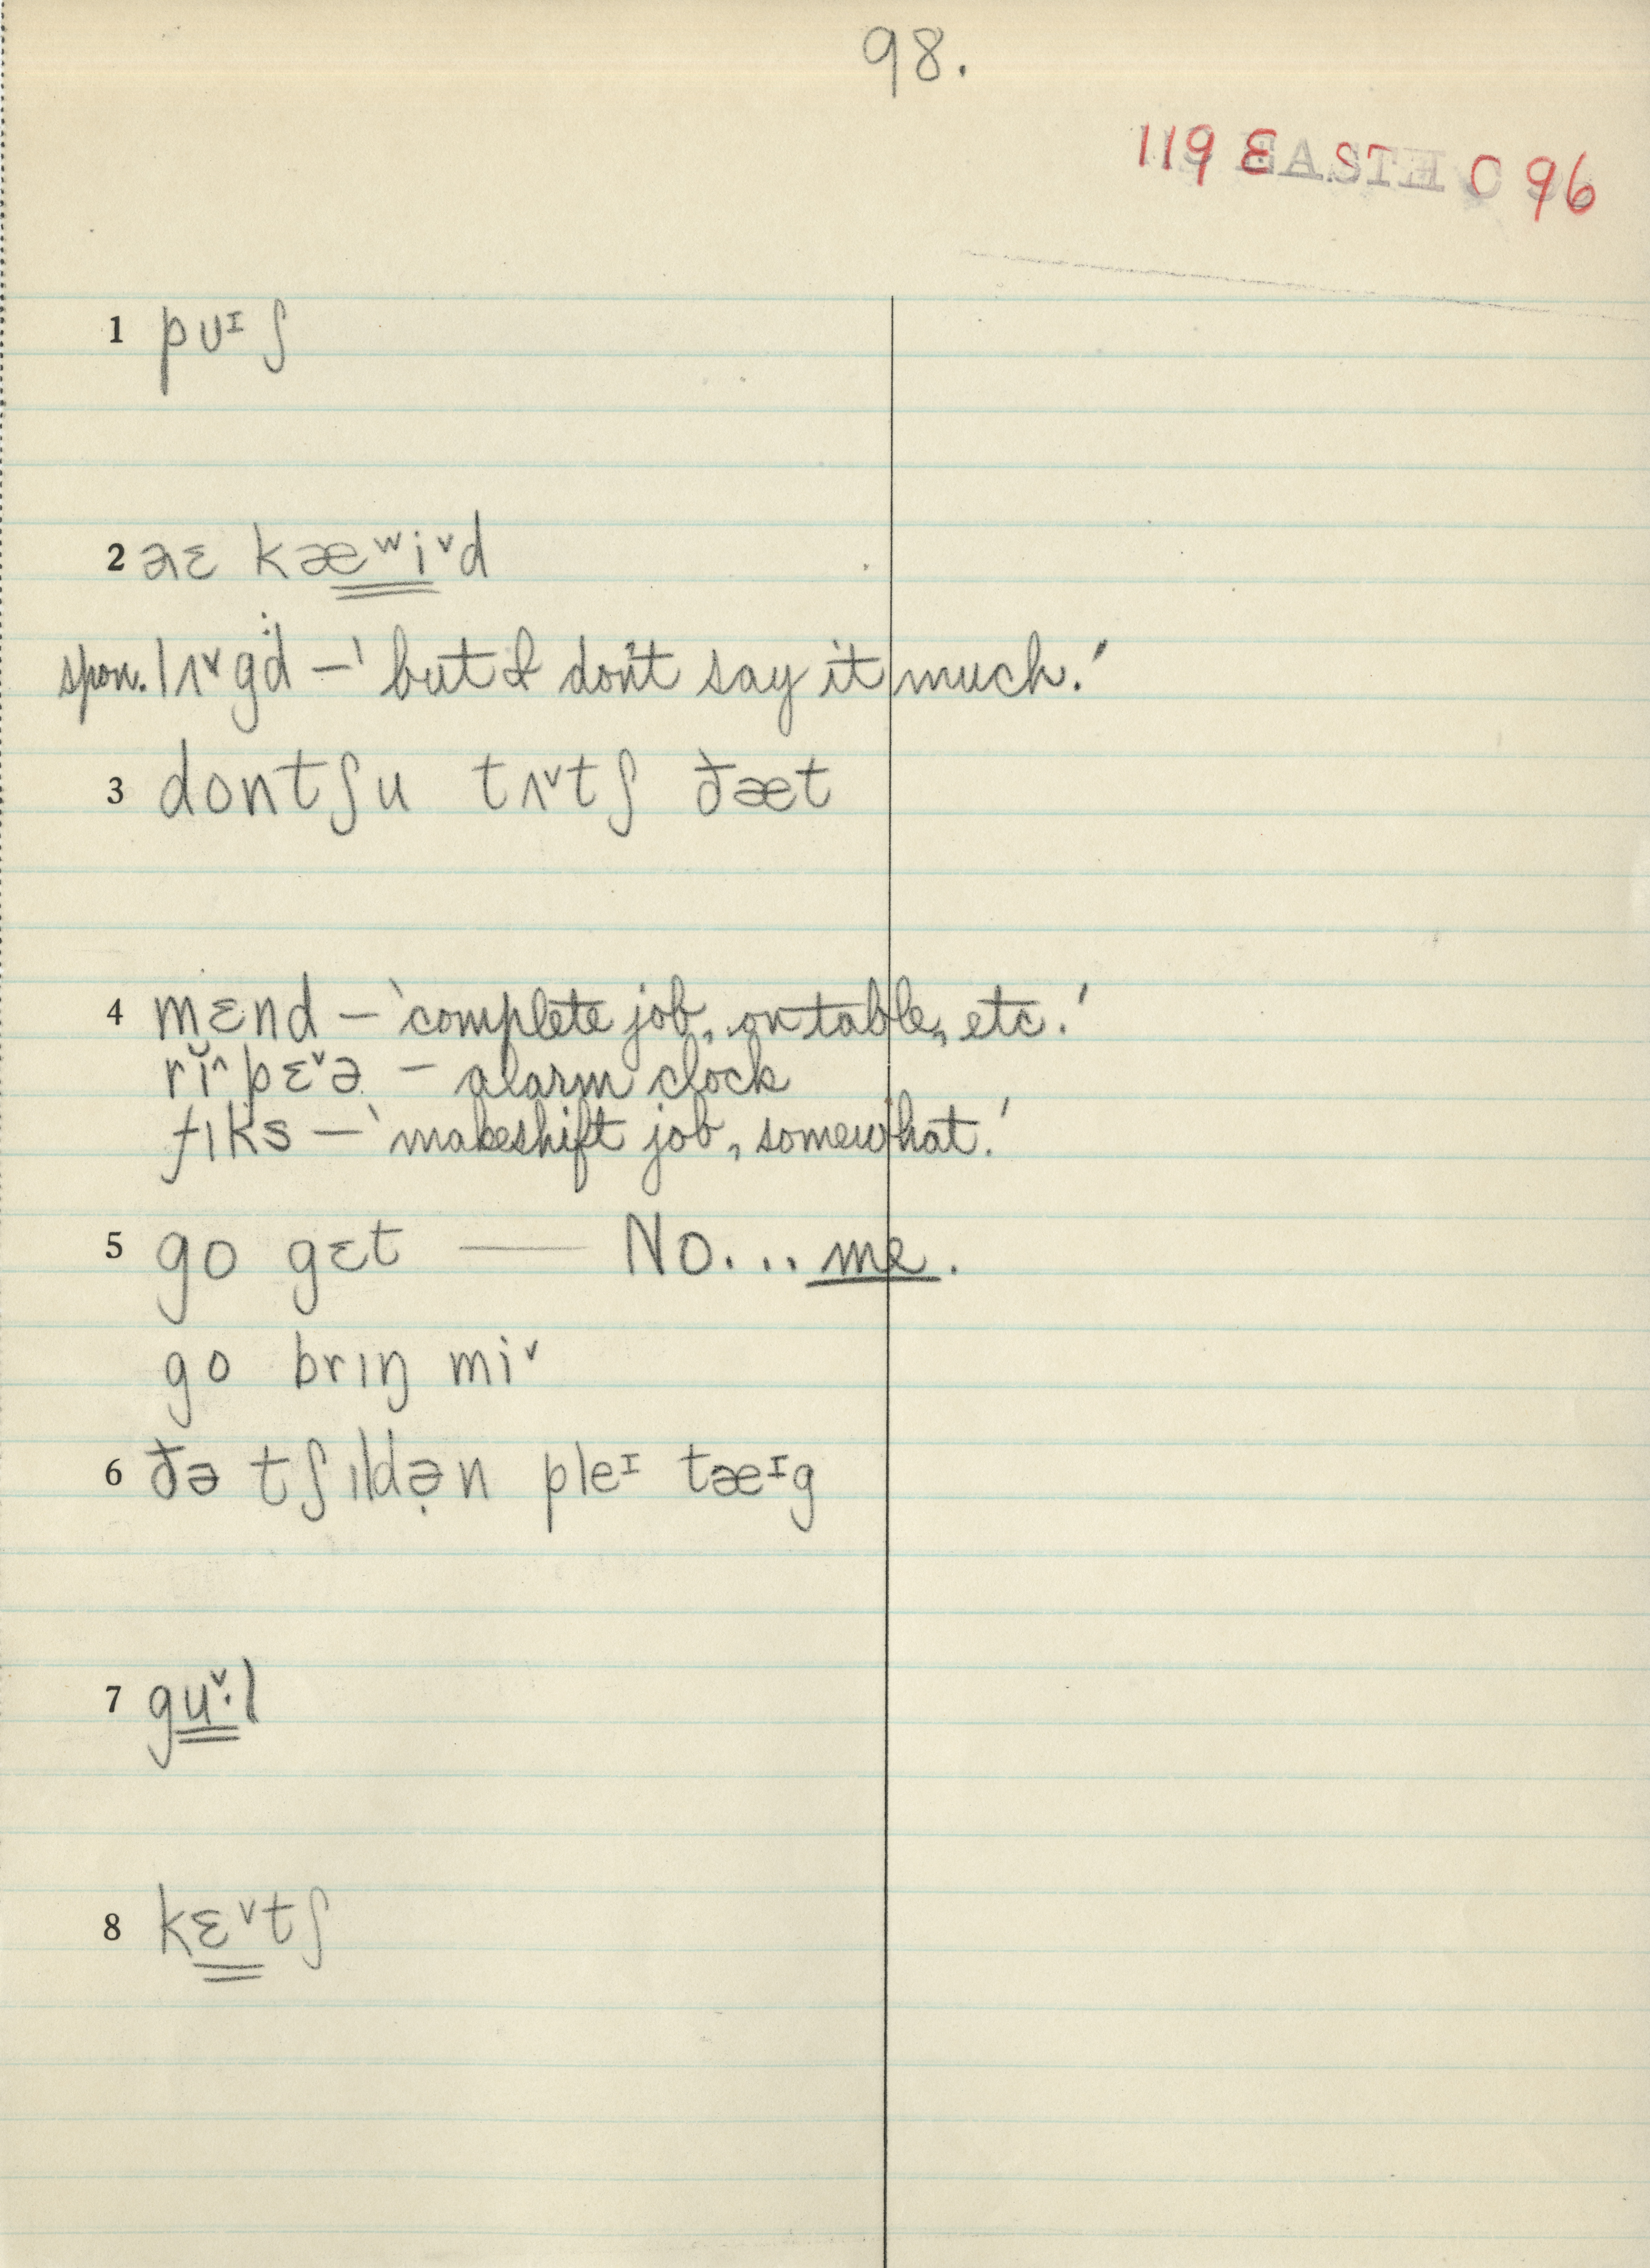 98.
119 EAST C 96
1 pʊᶦʃ
2 aɛ kæʷiᵛd
spon. lʌᵛgd — 'but I don't say it much.'
3 dontʃu tʌᵛtʃ ðæt
4 mɛnd — 'complete job, on table, etc.'
rĭ^pɛᵛə — alarm clock
fɪks — 'makeshift job, somewhat.'
5 go gɛt — No... me.
go brɪŋ miᵛ
6 ðə tʃɪldə̣n pleᶦ tæᶦg
7 guᵛ·l
8 kɛᵛtʃ